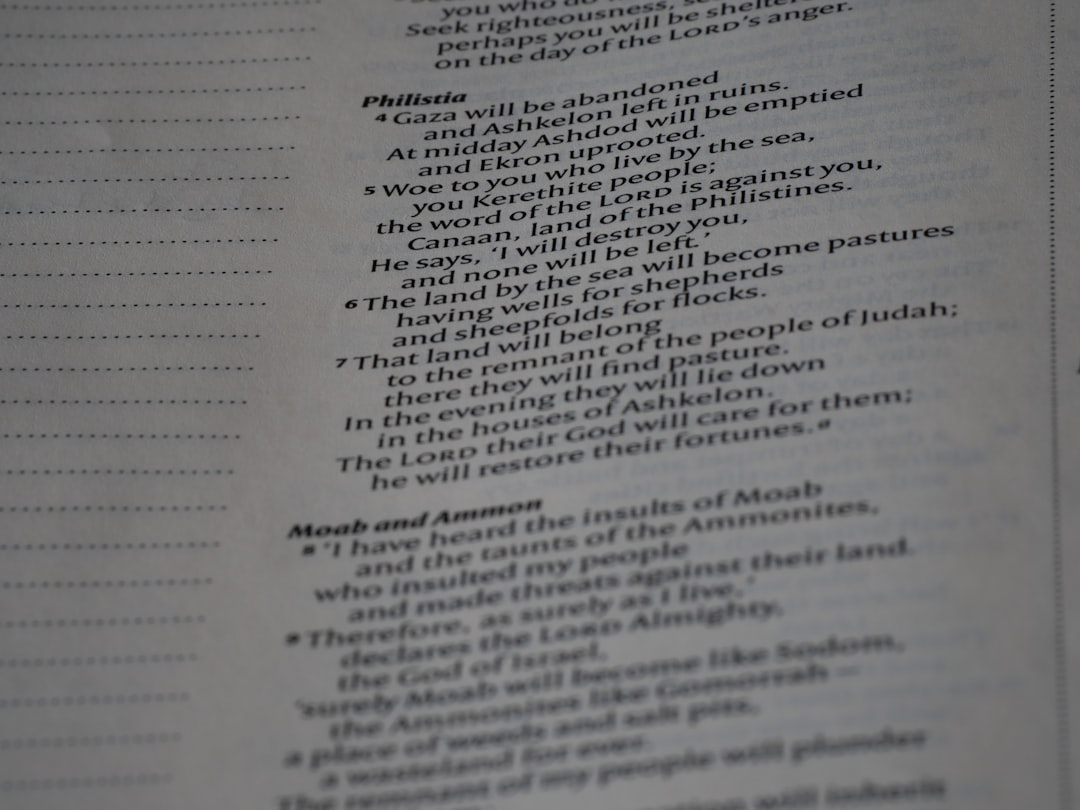 you who do
Seek righteousness,
perhaps you will be shelter
on the day of the LORD's anger.
Philistia
4 Gaza will be abandoned
and Ashkelon left in ruins.
At midday Ashdod will be emptied
and Ekron uprooted.
5 Woe to you who live by the sea,
you Kerethite people;
the word of the LORD is against you,
Canaan, land of the Philistines.
He says, ‘I will destroy you,
and none will be left.’
6 The land by the sea will become pastures
having wells for shepherds
and sheepfolds for flocks.
7 That land will belong
to the remnant of the people of Judah;
there they will find pasture.
In the evening they will lie down
in the houses of Ashkelon.
The LORD their God will care for them;
he will restore their fortunes.a
Moab and Ammon
8 ‘I have heard the insults of Moab
and the taunts of the Ammonites,
who insulted my people
and made threats against their land.
9 Therefore, as surely as I live,’
declares the LORD Almighty,
the God of Israel,
‘surely Moab will become like Sodom,
the Ammonites like Gomorrah –
a place of weeds and salt pits,
a wasteland for ever.
The remnant of my people will plunder